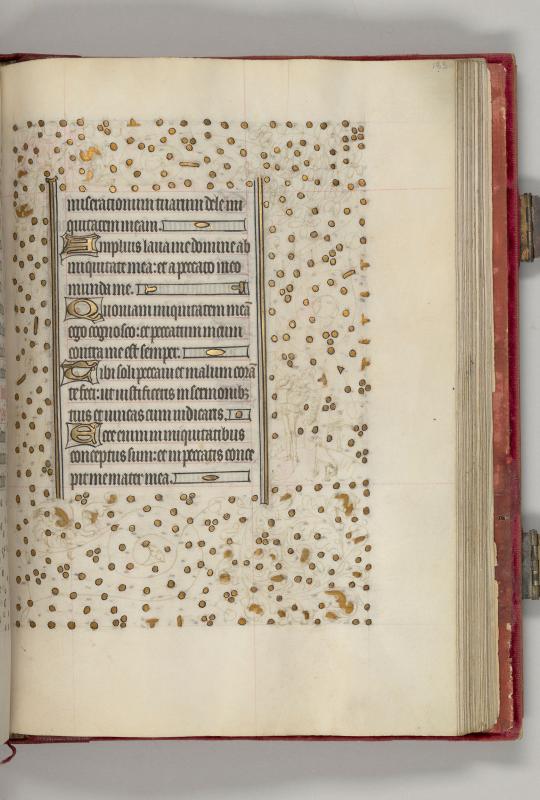 miserationum tuarum dele ini
quitatem meam.
Amplius laua me domine ab
iniquitate mea: et a peccato meo
munda me.
Quoniam iniquitatem meā
ego cognosco: et peccatum meum
contra me est semper.
Tibi soli peccaui et malum corā
te feci: ut iustificeris in sermonibꝫ
tuis et uincas cum iudicaris.
Ecce enim in iniquitatibus
conceptus sum: et in peccatis conce
pit me mater mea.